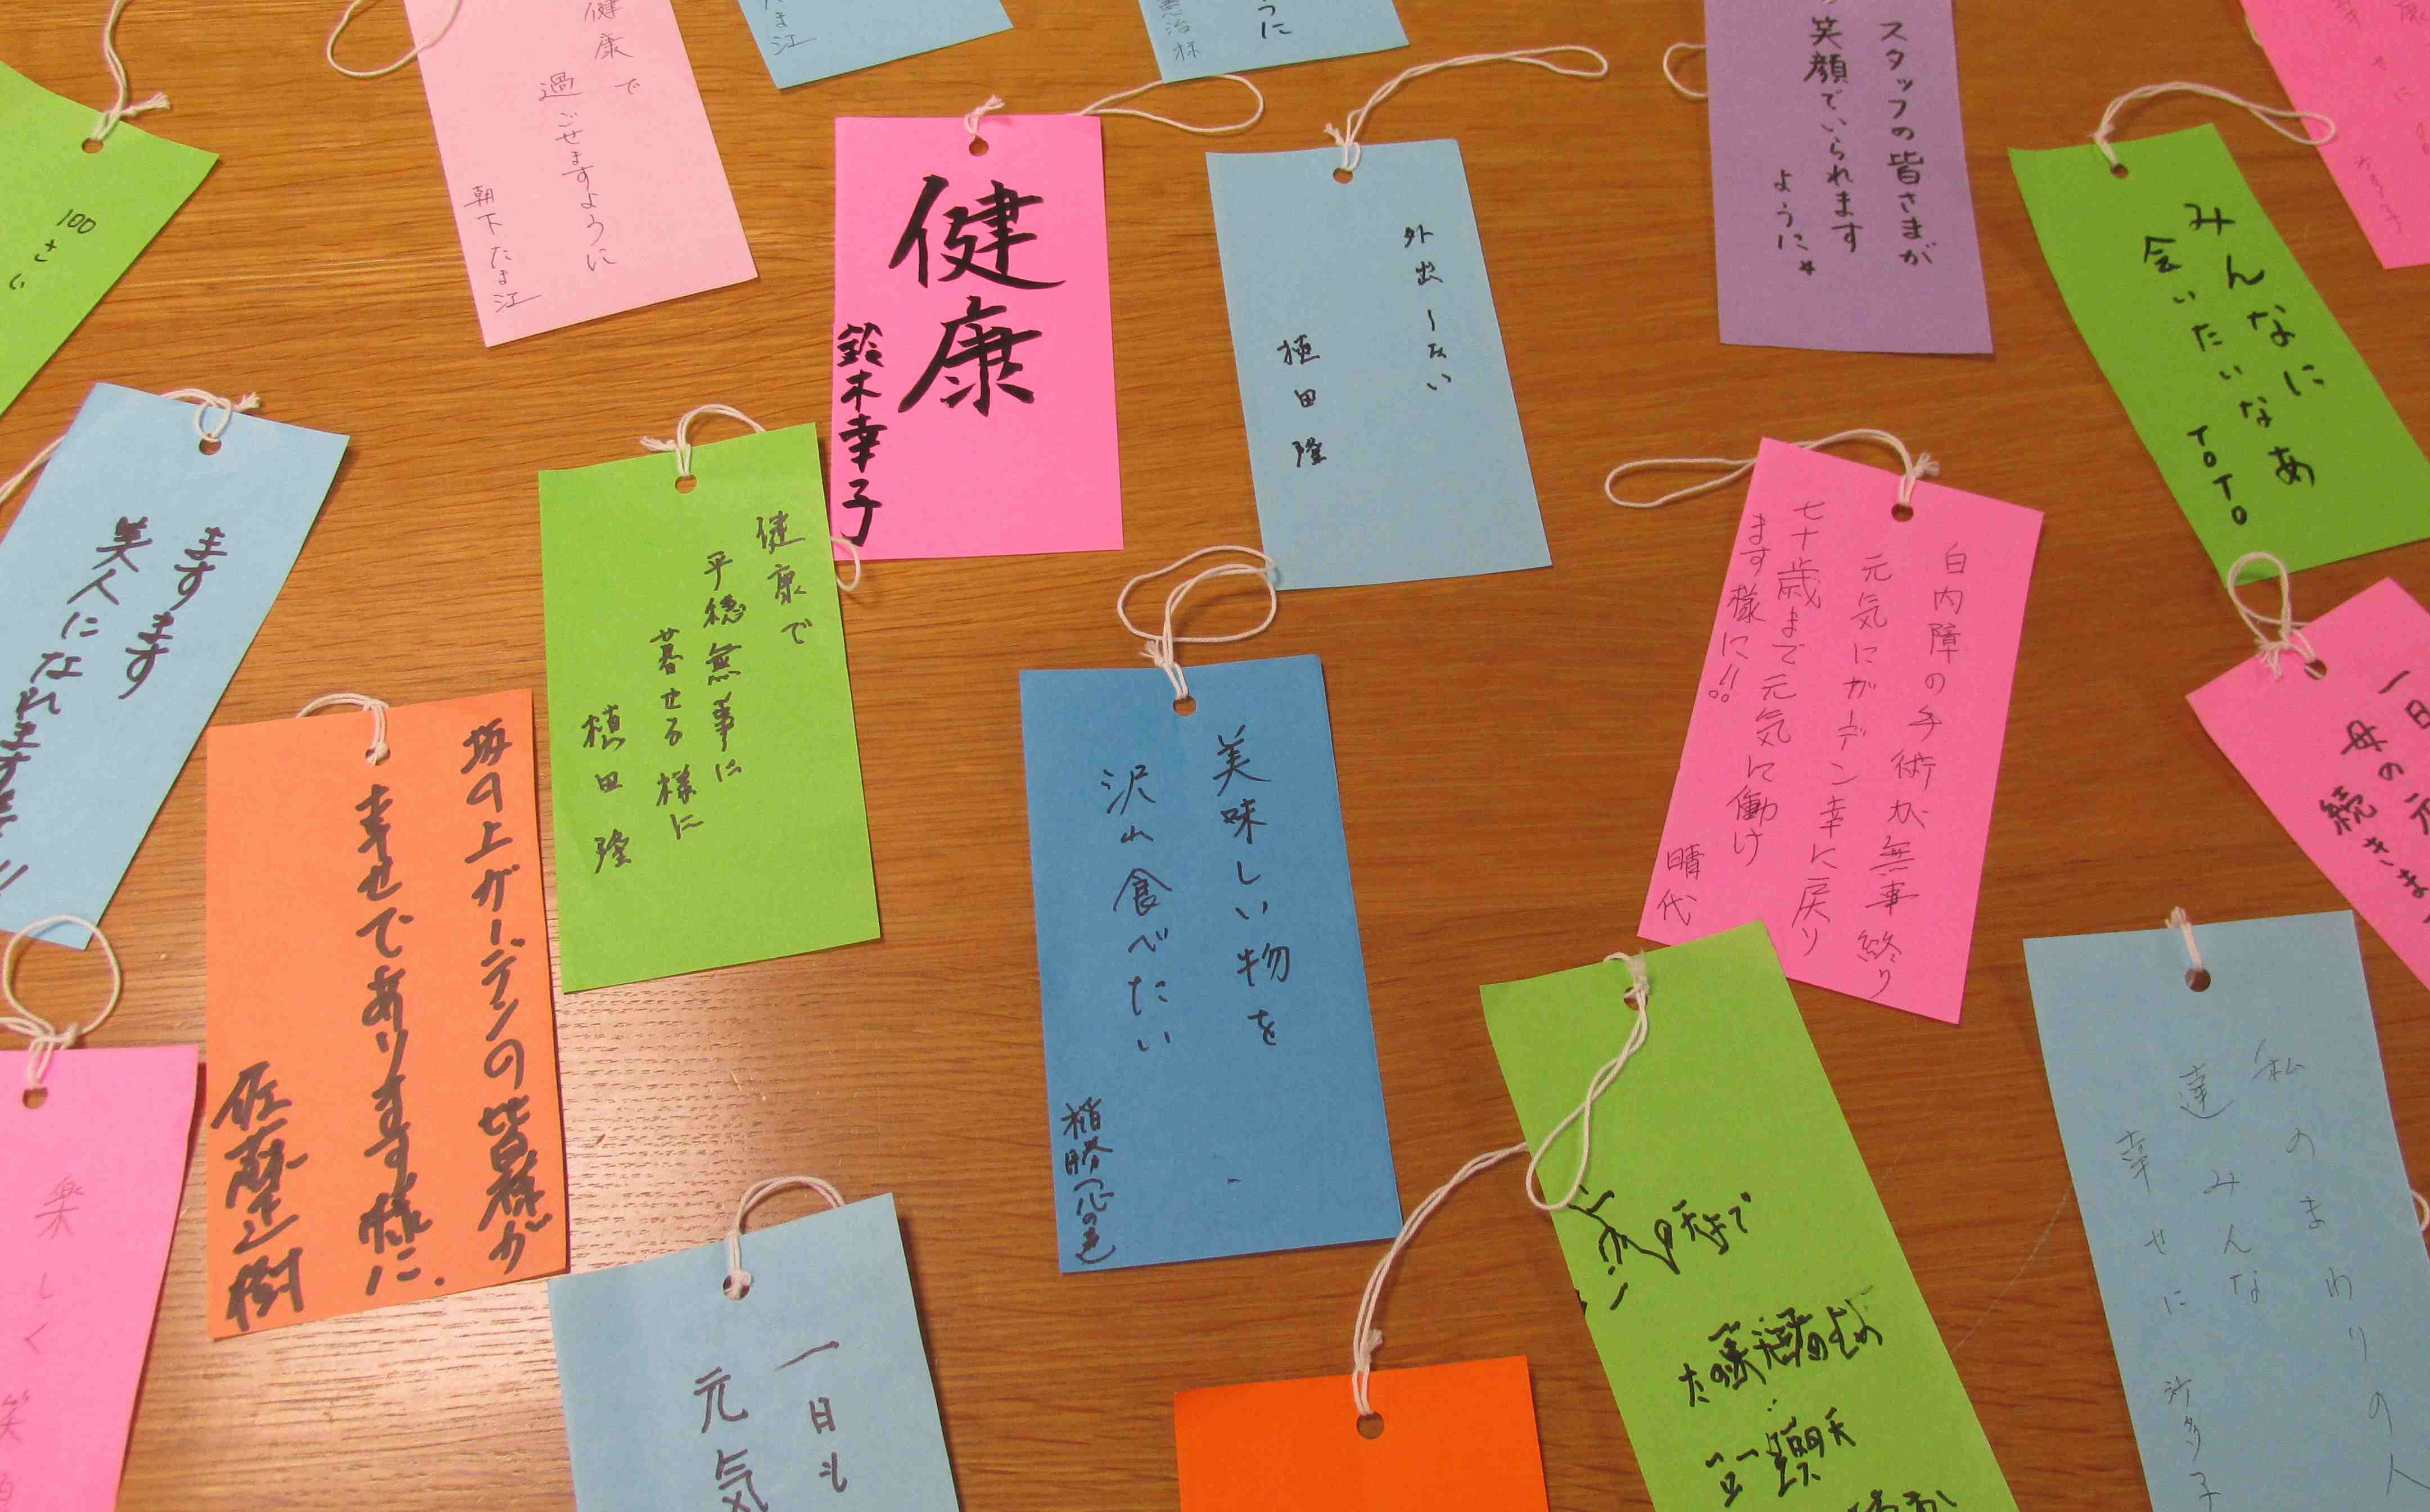 100
さい
健康で
過ごせますように
朝下たま江
たま江
うに
スタッフの皆さまが
笑顔でいられます
ように★
みんなに
会いたいなあ
TOTO
健康
鈴木幸子
外出しない
植田 隆
ますます
美人になれますように
健康で
平穏無事に
暮せる様に
植田 隆
坂の上ガーデンの皆様が
幸せであります様に.
美味しい物を
沢山食べたい
白内障の手術が無事終り
元気にガーデン幸に戻り
七十歳まで元気に働け
ます様に!!
晴代
一日
母の元
続きま
私のまわりの人
達みんな
幸せに
沙多子
楽しく笑
一日も
元気